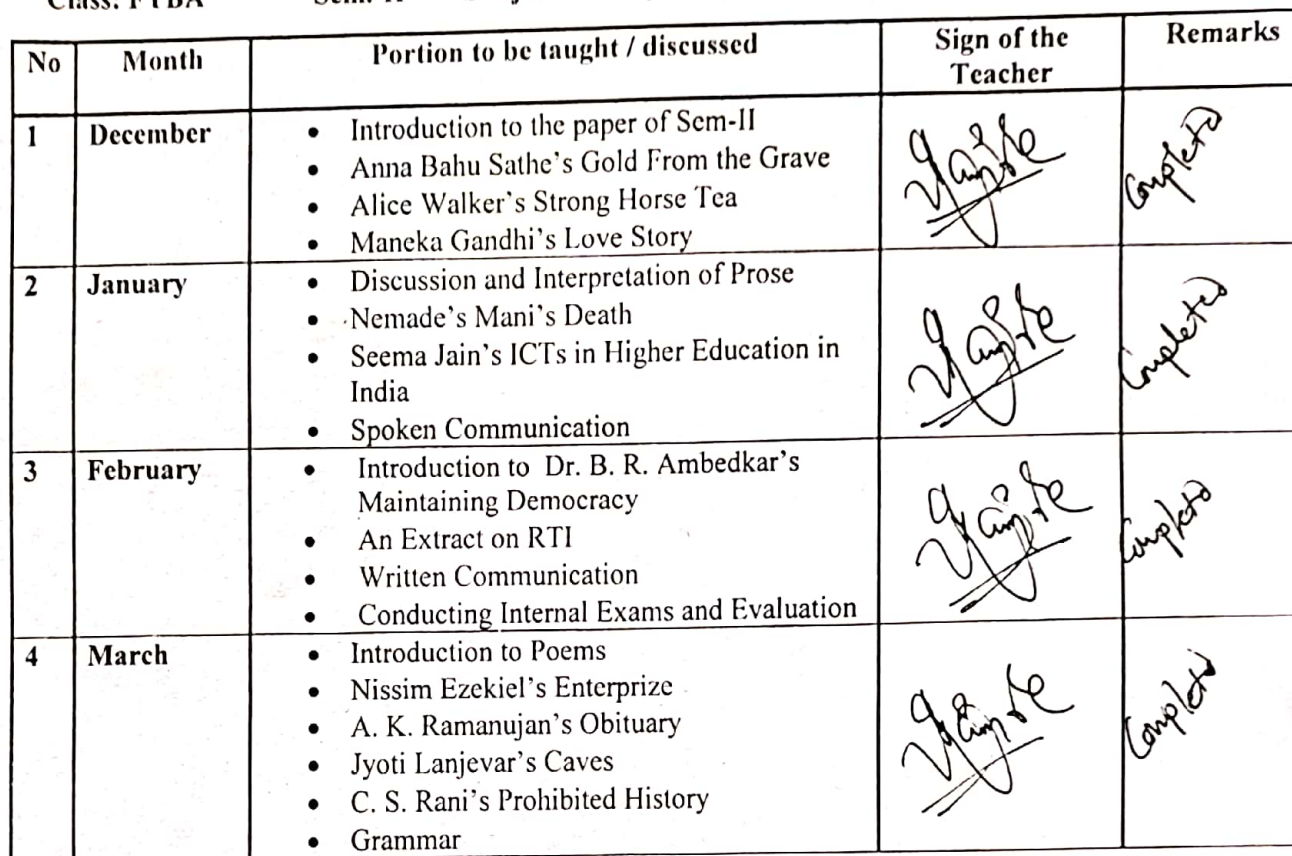 Class: FYBA
No Month Portion to be taught / discussed Sign of the Teacher Remarks
1 December • Introduction to the paper of Sem-II Completed
• Anna Bahu Sathe's Gold From the Grave
• Alice Walker's Strong Horse Tea
• Maneka Gandhi's Love Story
2 January • Discussion and Interpretation of Prose Completed
• Nemade's Mani's Death
• Seema Jain's ICTs in Higher Education in
India
• Spoken Communication
3 February • Introduction to Dr. B. R. Ambedkar's Completed
Maintaining Democracy
• An Extract on RTI
• Written Communication
• Conducting Internal Exams and Evaluation
4 March • Introduction to Poems Completed
• Nissim Ezekiel's Enterprize
• A. K. Ramanujan's Obituary
• Jyoti Lanjevar's Caves
• C. S. Rani's Prohibited History
• Grammar